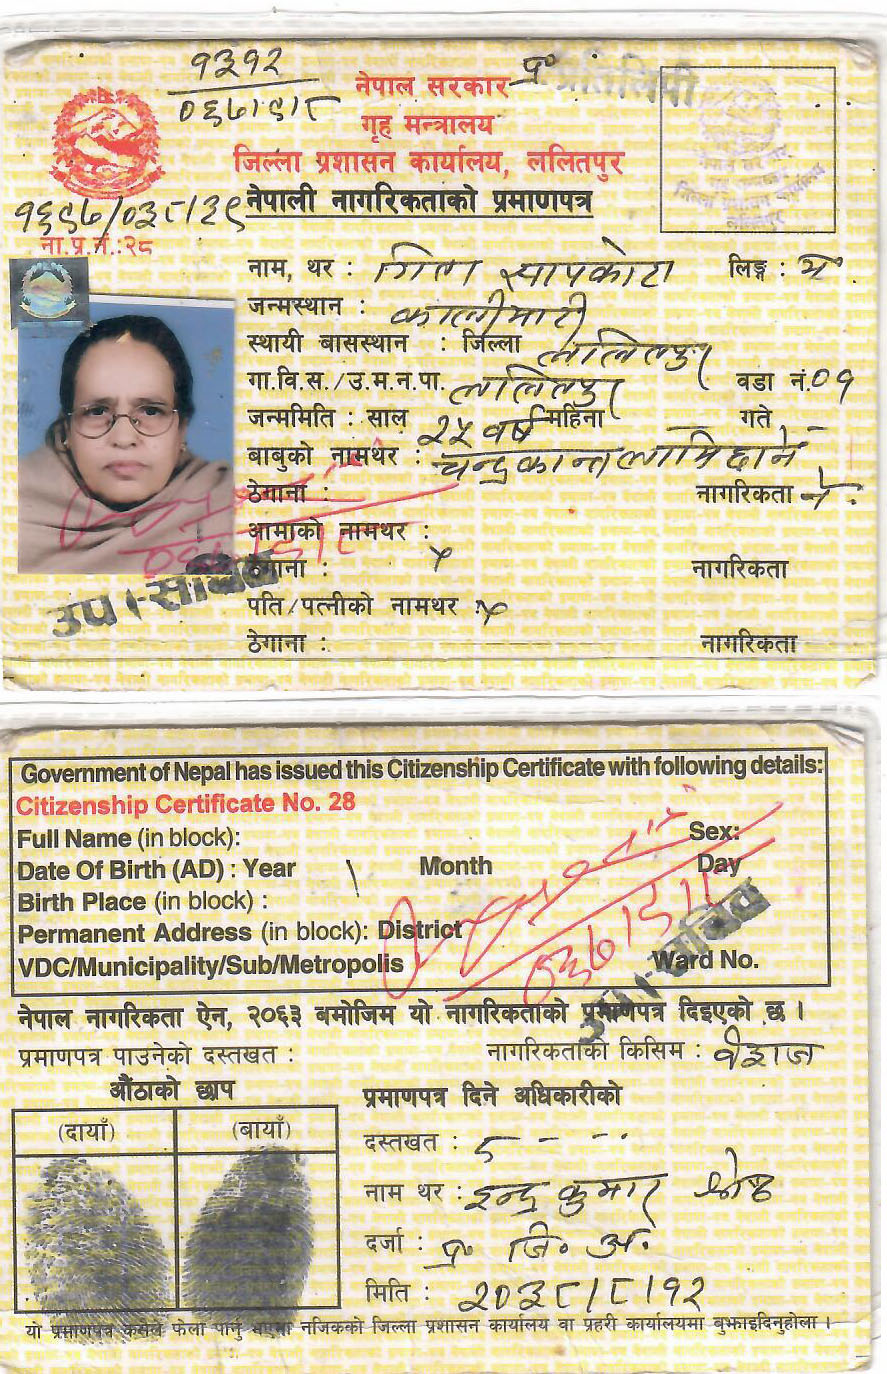 १३१२
०६७।९।८
प्र॰ प्रतिलिपी
नेपाल सरकार
गृह मन्त्रालय
जिल्ला प्रशासन कार्यालय, ललितपुर
नेपाली नागरिकताको प्रमाणपत्र
१६९७/०३८।३९
ना.प्र.नं.:२८
नाम, थर : गिता सापकोटा लिङ्ग :
जन्मस्थान : कालीमाटी
स्थायी बासस्थान : जिल्ला ललितपुर
गा.वि.स./उ.म.न.पा. ललितपुर वडा नं. ०१
जन्ममिति : साल २५ वर्ष महिना — गते –
बाबुको नामथर : चन्द्रकान्त लामिछाने
ठेगाना : नागरिकता ने.
आमाको नामथर :
ठेगाना : × नागरिकता
पति/पत्नीको नामथर : ×
ठेगाना : नागरिकता
उप-सचिव
Government of Nepal has issued this Citizenship Certificate with following details:
Citizenship Certificate No. 28
Full Name (in block): Sex:
Date Of Birth (AD) : Year Month Day
Birth Place (in block) :
Permanent Address (in block): District
VDC/Municipality/Sub/Metropolis Ward No.
०६७।९।८
उप-सचिव
नेपाल नागरिकता ऐन, २०६३ बमोजिम यो नागरिकताको प्रमाणपत्र दिइएको छ ।
प्रमाणपत्र पाउनेको दस्तखत : नागरिकताको किसिम : वंशज
औंठाको छाप
प्रमाणपत्र दिने अधिकारीको
(दायाँ) (बायाँ)
दस्तखत :
नाम थर : इन्द्र कुमार श्रेष्ठ
दर्जा : प्र॰ जि॰ अ.
मिति : २०३८।८।१२
यो प्रमाणपत्र कसैले फेला पारेमा नजिकको जिल्ला प्रशासन कार्यालय वा प्रहरी कार्यालयमा बुझाइदिनुहोला ।